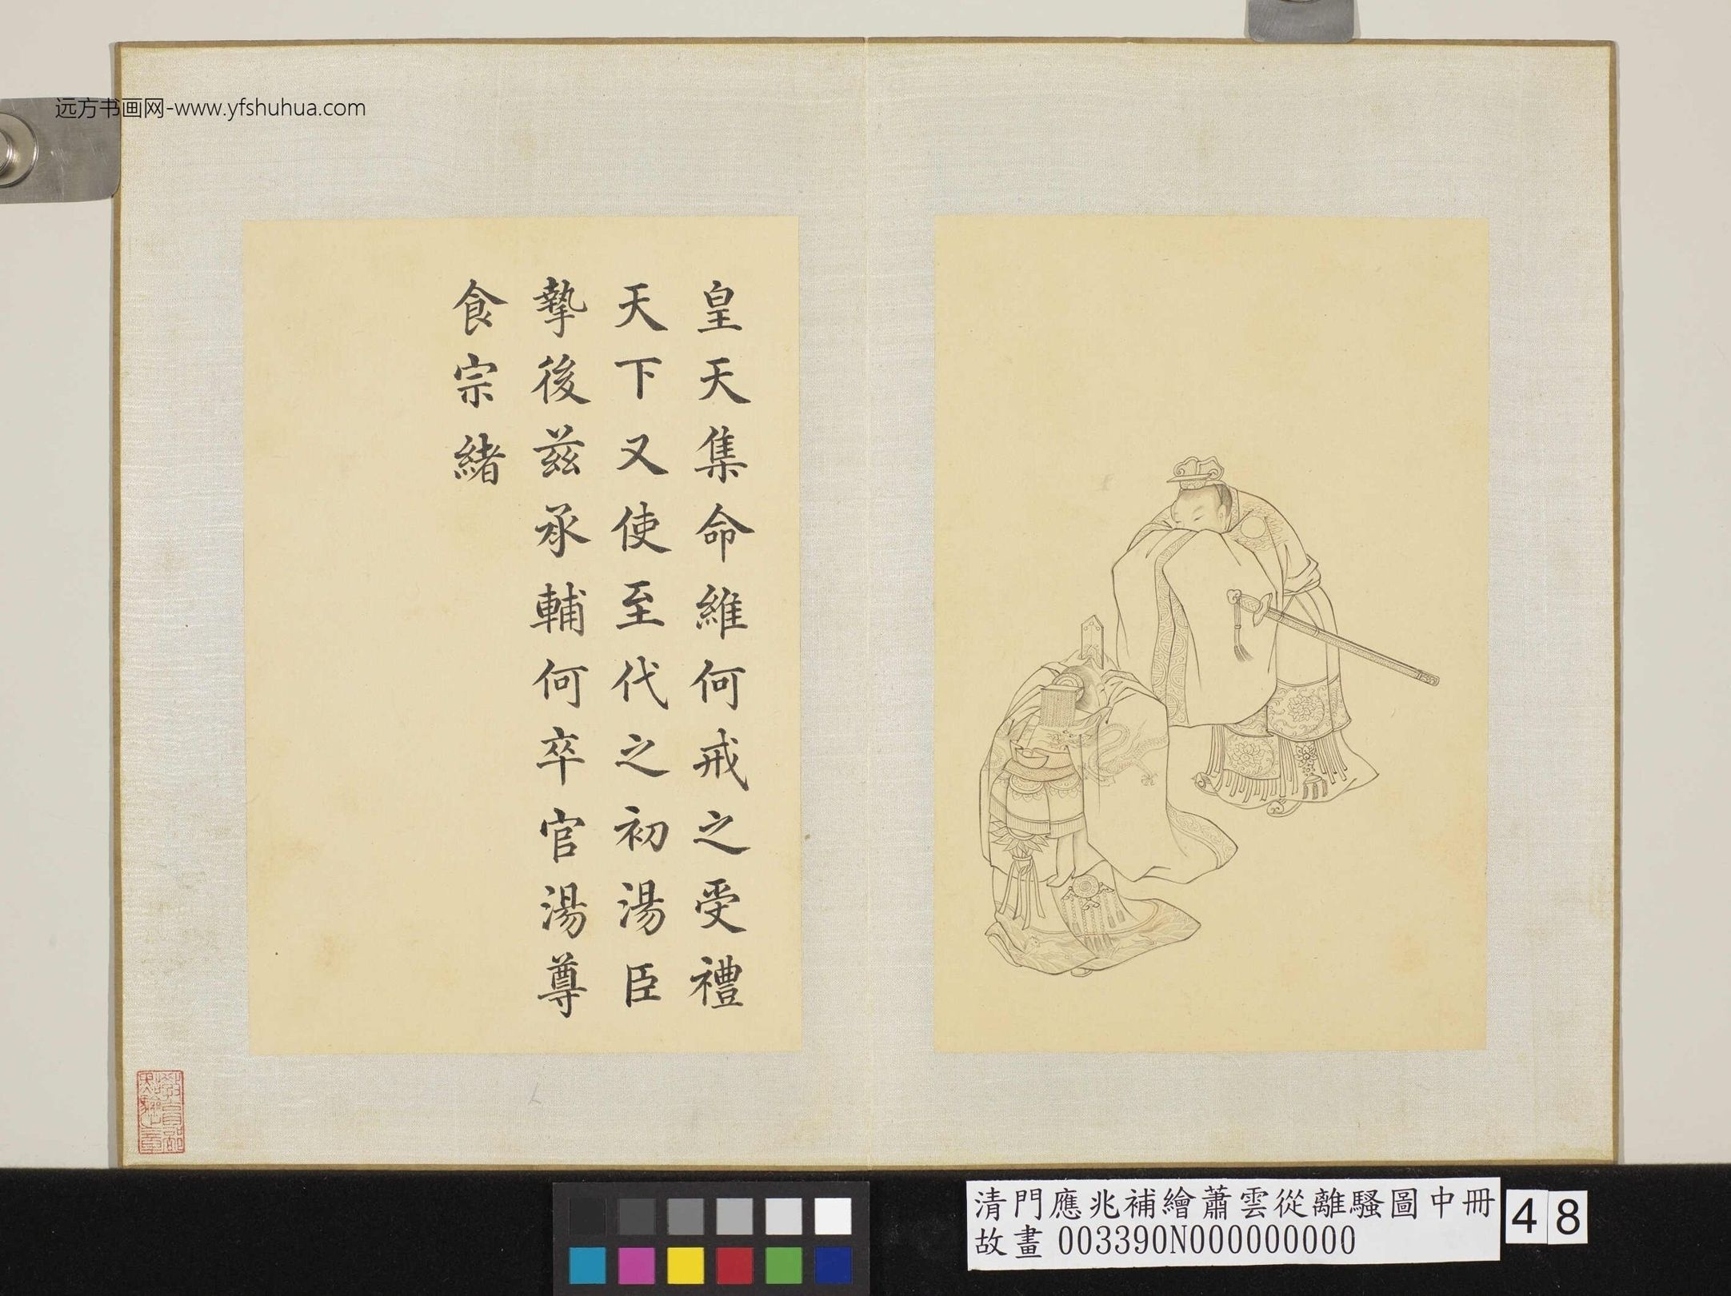 远方书画网-www.yfshuhua.com
皇天集命維何戒之受禮
天下又使至代之初湯臣
摯後茲承輔何卒官湯尊
食宗緒
清門應兆補繪蕭雲從離騷圖中冊
故畫 003390N000000000
48